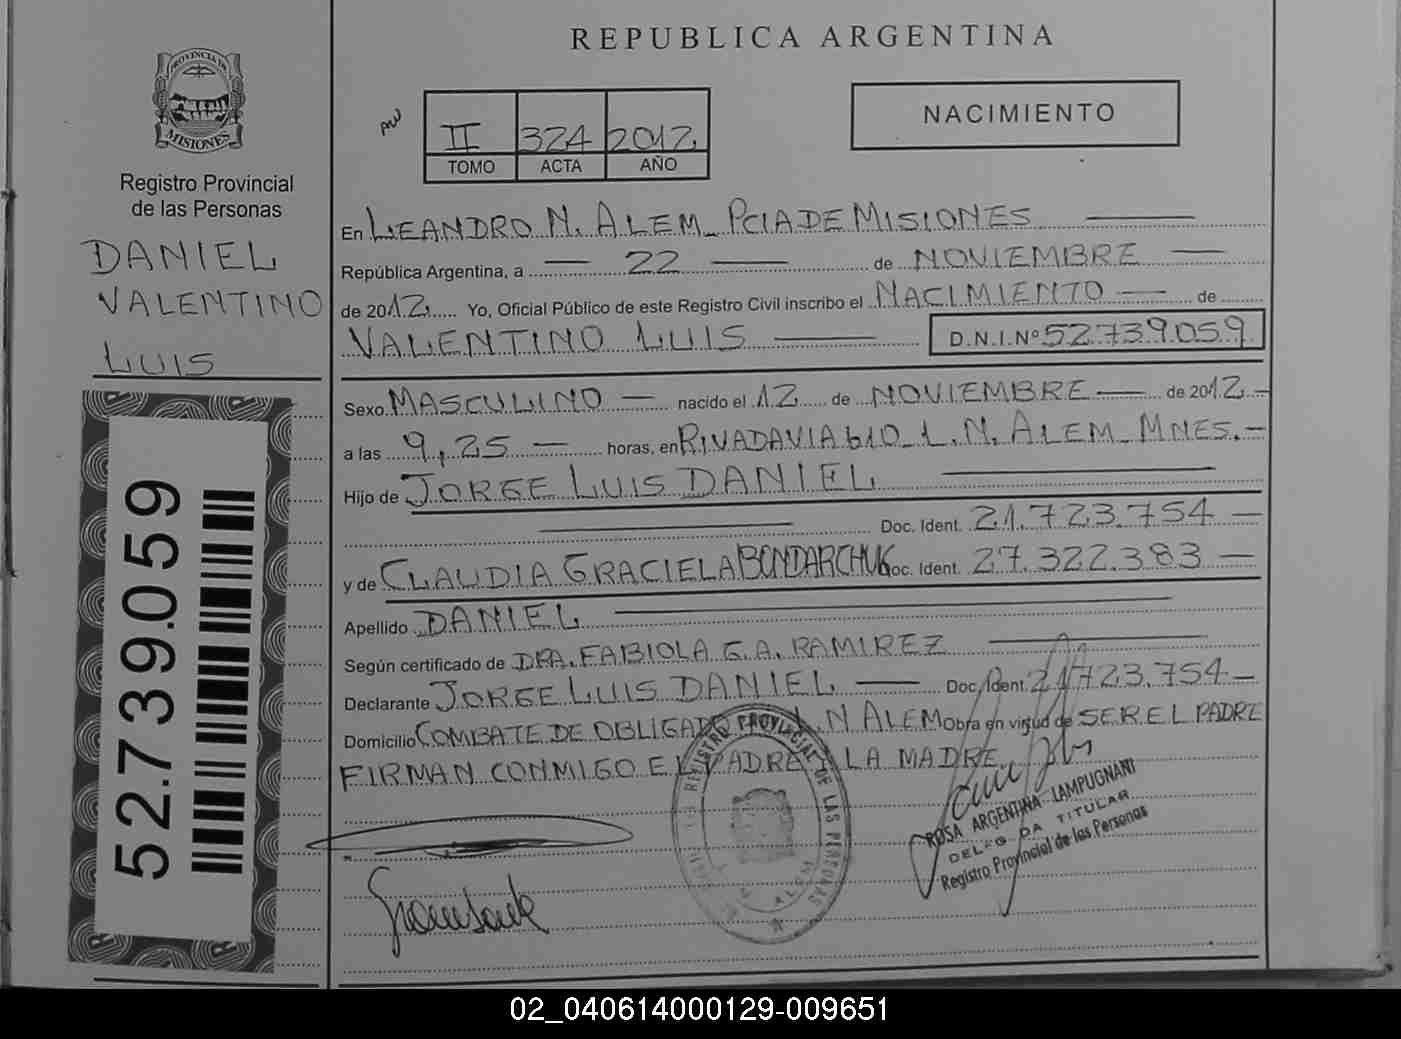 REPUBLICA ARGENTINA
PROVINCIA DE
MISIONES
Registro Provincial
de las Personas
DANIEL
VALENTINO
LUIS
52.739.059
II 324 2012
TOMO ACTA AÑO
NACIMIENTO
En LEANDRO N. ALEM_ PCIA DE MISIONES
República Argentina, a — 22 — de NOVIEMBRE —
de 2012 Yo, Oficial Público de este Registro Civil inscribo el NACIMIENTO — de
VALENTINO LUIS — D.N.I.Nº 52.739.059
Sexo MASCULINO — nacido el 12 de NOVIEMBRE — de 2012.-
a las 9,25 — horas, en RIVADAVIA 610_L.N. ALEM_MNES.-
Hijo de JORGE LUIS DANIEL —
— Doc. Ident. 21.723.754 —
y de CLAUDIA GRACIELA BONDARCHUK oc. Ident. 27.322.383 —
Apellido DANIEL —
Según certificado de DRA. FABIOLA G.A. RAMIREZ —
Declarante JORGE LUIS DANIEL — Doc. Ident. 21.723.754 —
Domicilio COMBATE DE OBLIGADO L.N ALEM Obra en virtud de SER EL PADRE
FIRMAN CONMIGO EL PADRE Y LA MADRE.
REGISTRO PROVINCIAL DE LAS PERSONAS
ALEM
ROSA ARGENTINA LAMPUGNANI
DELEGADA TITULAR
Registro Provincial de las Personas
02_040614000129-009651